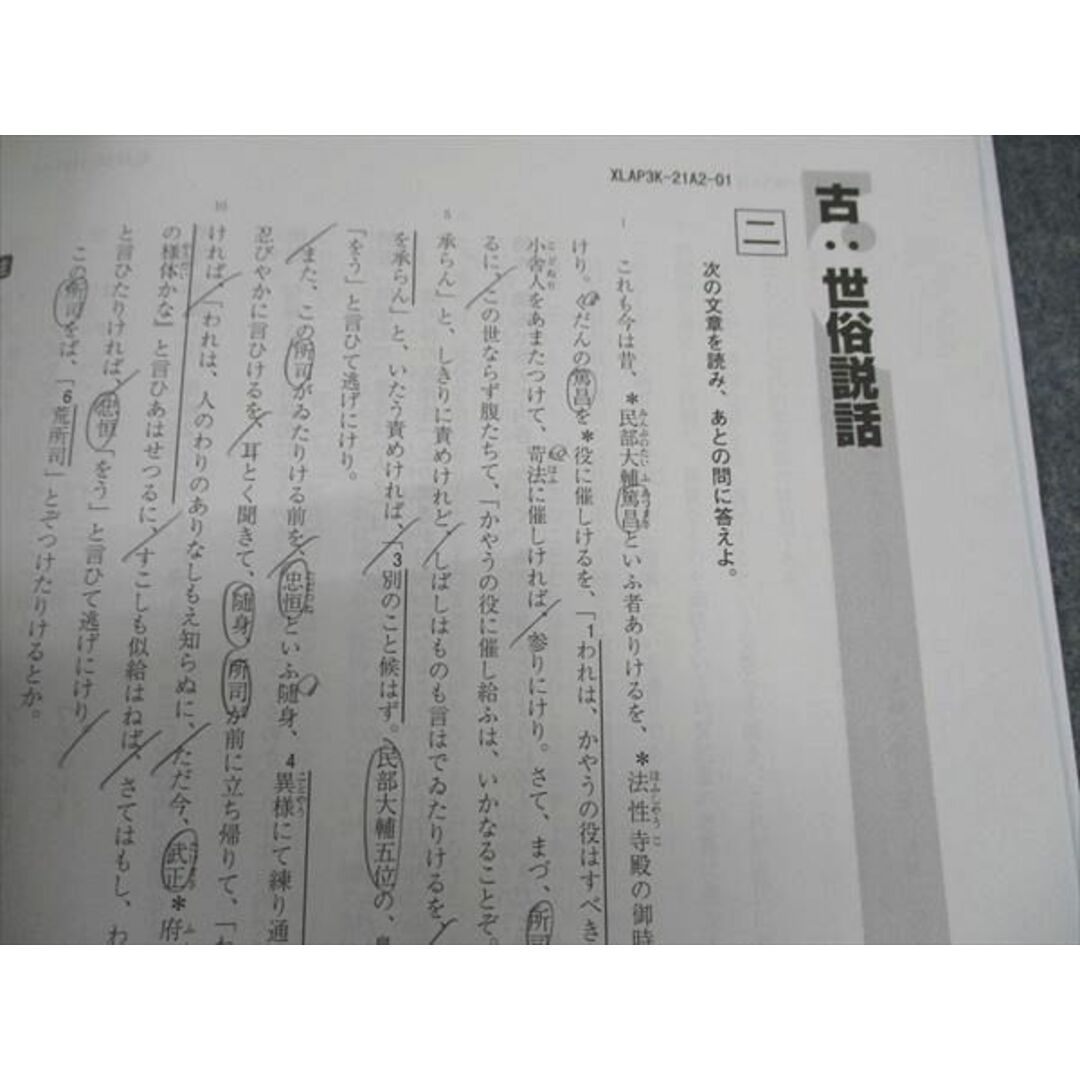 XLAP3K-21A2-01
古:世俗説話
二
次の文章を読み、あとの問に答えよ。
1
これも今は昔、*民部大輔篤昌といふ者ありけるを、*法性寺殿の御時
みんぶのたいふあつまさ
ほふしやうじ
けり。くだんの篤昌を*役に催しけるを、「1われは、かやうの役はすべき
小舎人をあまたつけて、苛法に催しければ、参りにけり。さて、まづ、所司
こどねり
はふ
るに、この世ならず腹たちて、「かやうの役に催し給ふは、いかなることぞ。
5
承らん」と、しきりに責めけれど、しばしはものも言はでゐたりけるを、
を承らん」と、いたう責めければ、「3別のこと候はず。民部大輔五位の、
「をう」と言ひて逃げにけり。
また、この所司がゐたりける前を、忠恒といふ随身、4異様にて練り通
ことやう
忍びやかに言ひけるを、耳とく聞きて、随身、所司が前に立ち帰りて、「わ
10
ければ、「われは、人のわりのありなしもえ知らぬに、ただ今、武正*府
ふ
の様体かな」と言ひあはせつるに、すこしも似給はねば、さてはもし、わ
やうだい
と言ひたりければ、忠恒「をう」と言ひて逃げにけり。
この所司をば、「6荒所司」とぞつけたりけるとか。